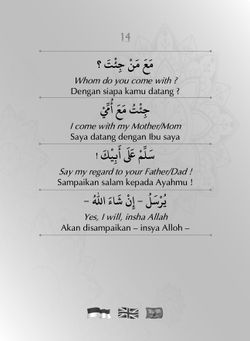 14
مَعَ مَنْ جِئْتَ ؟
Whom do you come with ?
Dengan siapa kamu datang ?
جِئْتُ مَعَ أُمِّيْ
I come with my Mother/Mom
Saya datang dengan Ibu saya
سَلِّمْ عَلَى أَبِيْكَ !
Say my regard to your Father/Dad !
Sampaikan salam kepada Ayahmu !
يُرْسَلُ – إِنْ شَاءَ اللهُ –
Yes, I will, insha Allah
Akan disampaikan – insya Alloh –